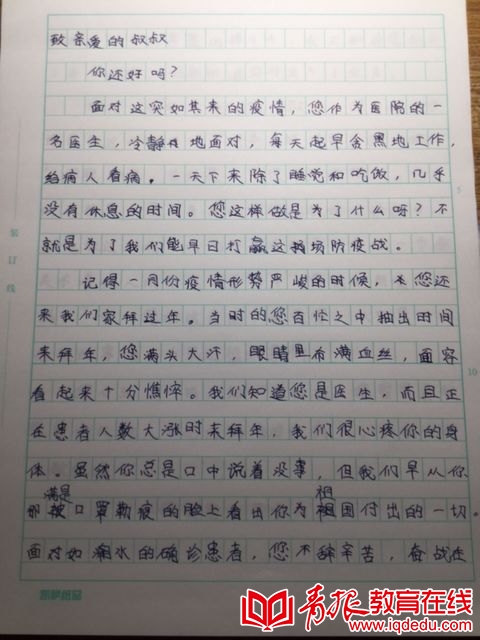 致亲爱的叔叔
你还好吗？
面对这突如其来的疫情，您作为医院的一
名医生，冷静地面对，每天起早贪黑地工作，
给病人看病。一天下来除了睡觉和吃饭，几乎
没有休息的时间。您这样做是为了什么呀？不
就是为了我们能早日打赢这场防疫战。
记得一月份疫情形势严峻的时候，您还
来我们家拜过年。当时的您百忙之中抽出时间
来拜年，您满头大汗，眼睛里布满血丝，面容
看起来十分憔悴。我们知道您是医生，而且正
在患者人数大涨时来拜年，我们很心疼你的身
体。虽然你总是口中说着没事，但我们早从你
满是 祖
那被口罩勒痕的脸上看出你为祖国付出的一切。
面对如潮水的确诊患者，您不辞辛苦，奋战在
装订线
5
10
凯萨纸品
青报教育在线
www.iqdedu.com